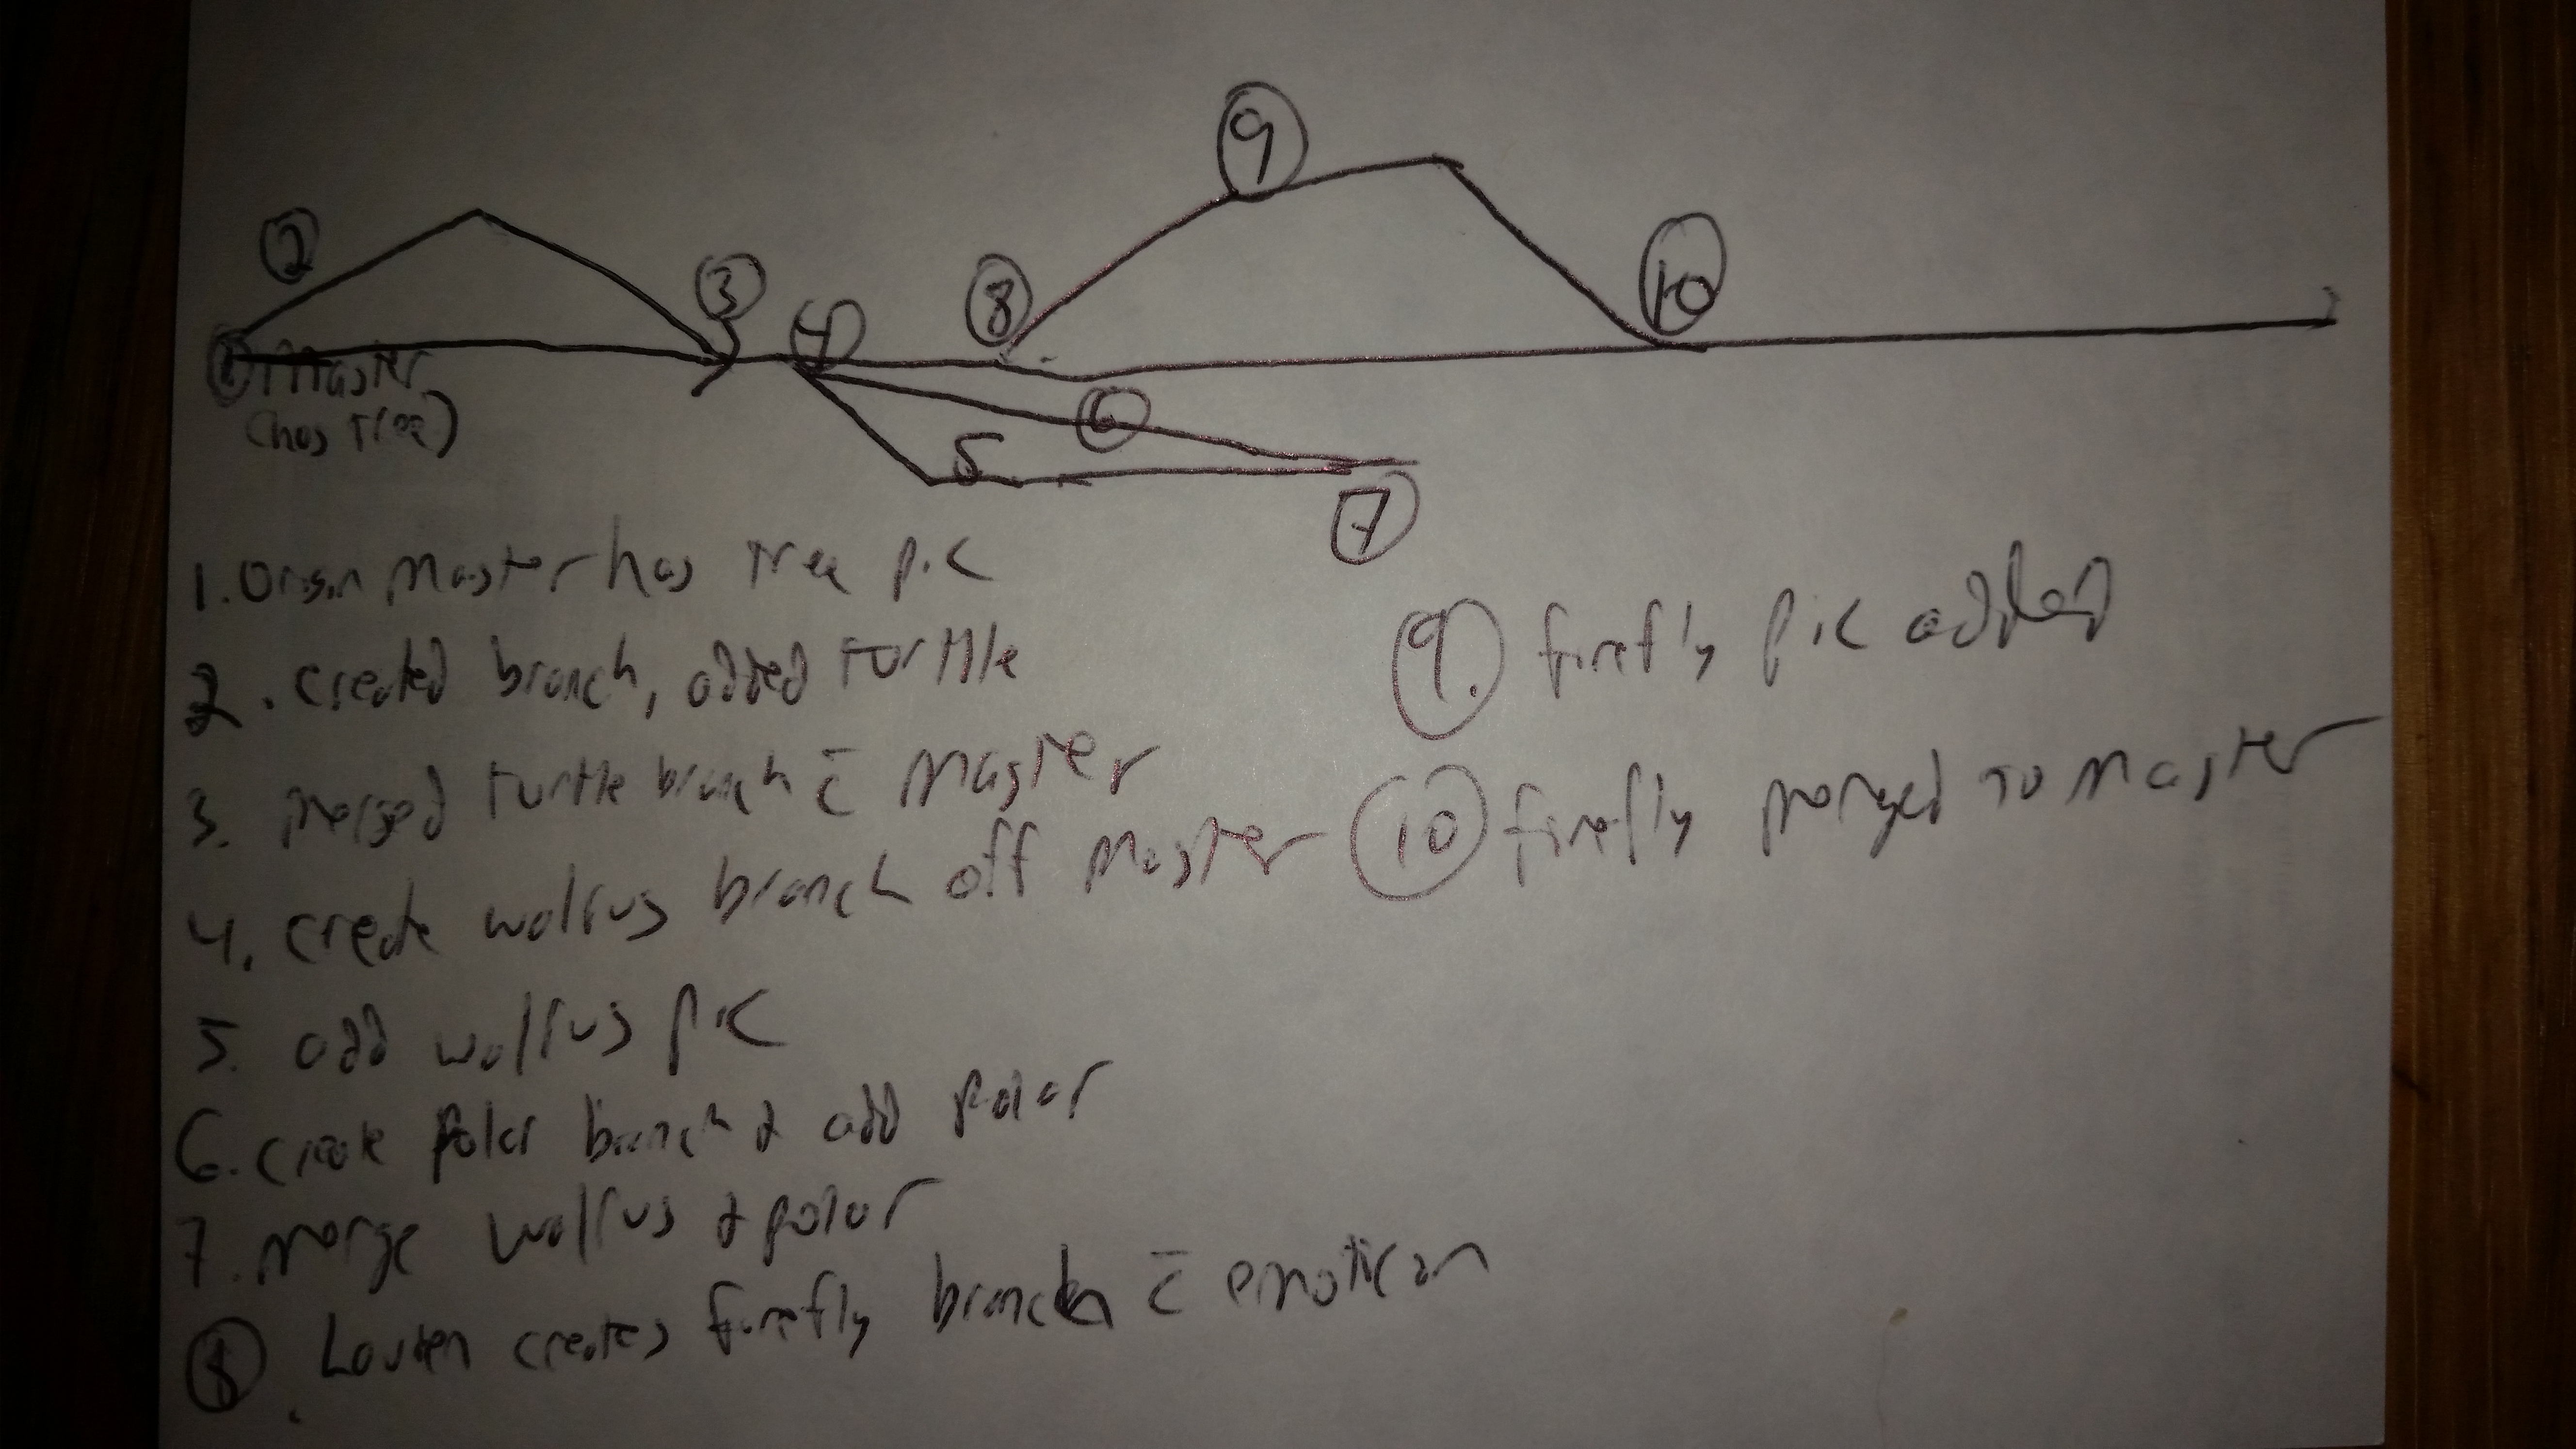 9
2
3
8
10
4
1 Master
(has Tree)
6
5
7
1. Origin Master has Tree pic
2. created branch, added turtle
3. merged turtle branch c̄ Master
4. create walrus branch off Master
5. add walrus pic
6. create polar branch & add polar
7. merge walrus & polar
8 Lauren creates firefly branch c̄ emotican
9. firefly pic added
10 firefly merged to Master